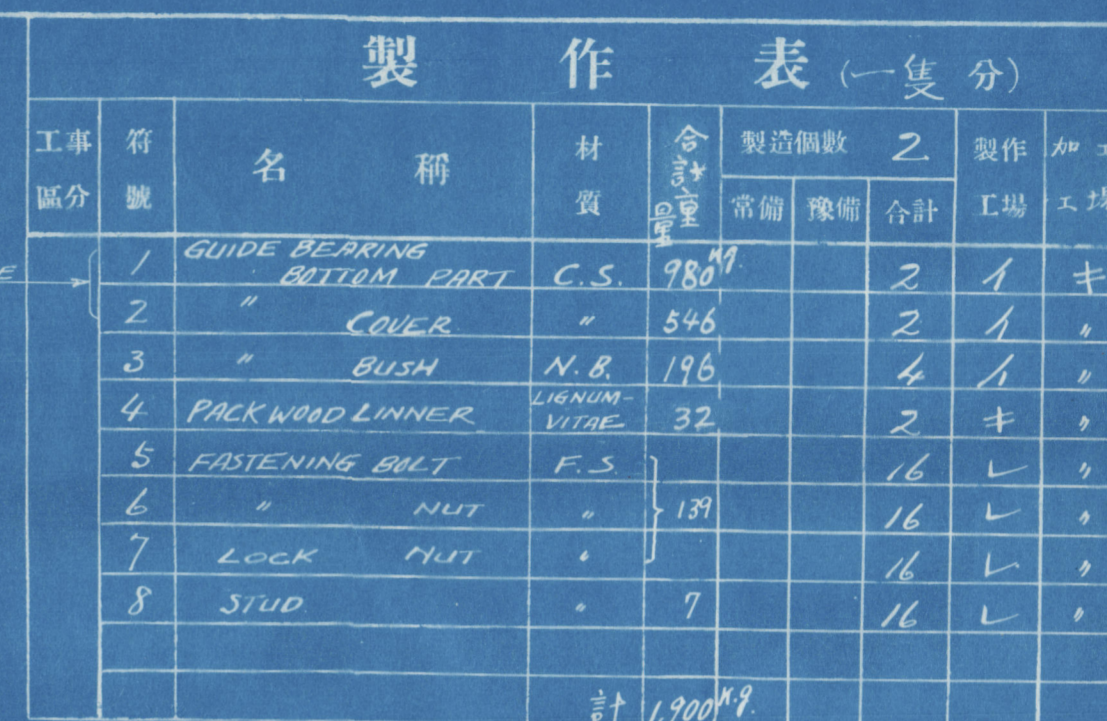 製作表(一隻分)
工事區分 符號 名稱 材質 合計重量 製造個數 2 製作工場
常備 豫備 合計
1 GUIDE BEARING
BOTTOM PART C.S. 980Kg. 2 イ キ
2 〃 COVER 〃 546 2 イ 〃
3 〃 BUSH N.B. 196 4 イ 〃
4 PACKWOOD LINNER LIGNUM-
VITAE 32 2 キ 〃
5 FASTENING BOLT F.S. 16 レ 〃
6 〃 NUT 〃 139 16 レ 〃
7 LOCK NUT 〃 16 レ 〃
8 STUD 〃 7 16 レ 〃
計 1,900K.g.